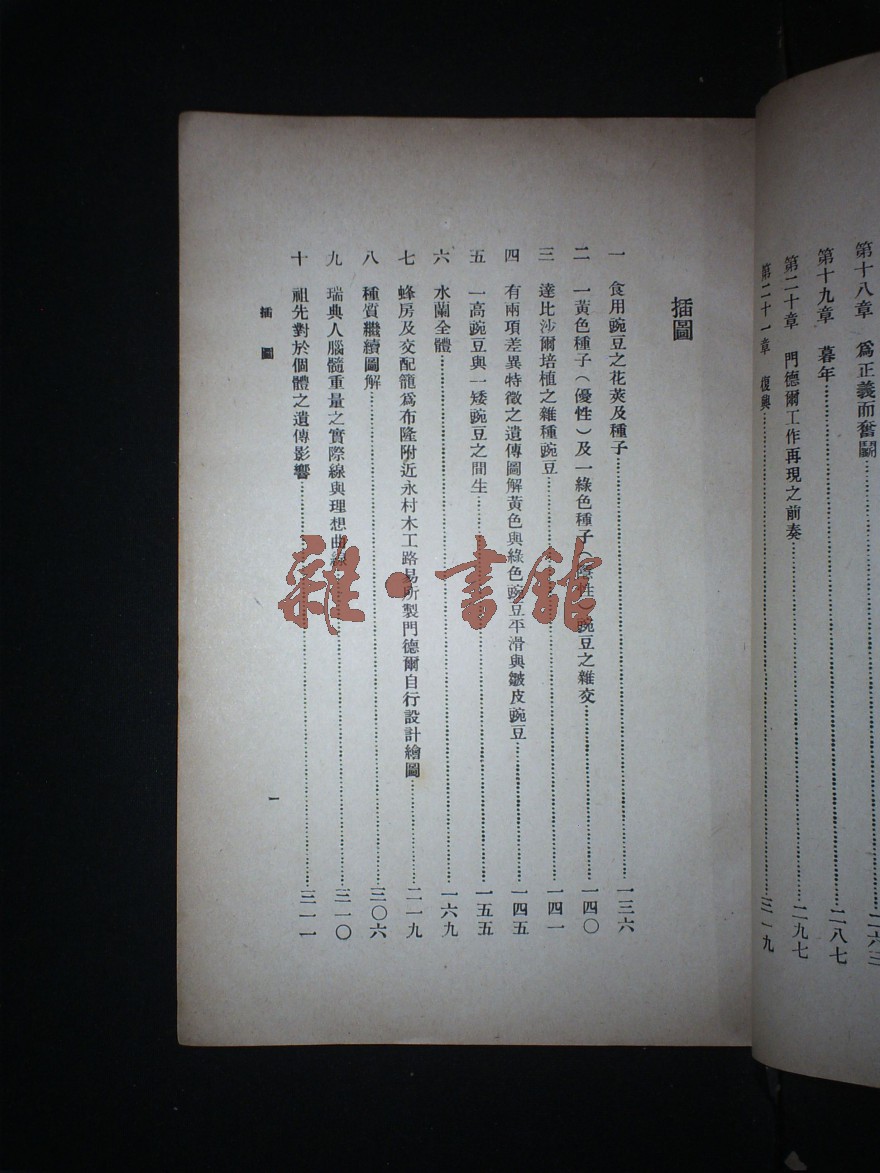 第十八章　爲正義而奮鬭……二六三
第十九章　暮年……二八七
第二十章　門德爾工作再現之前奏……二九七
第二十一章　復興……三一九
插圖
一　食用豌豆之花莢及種子……一三六
二　一黃色種子(優性)及一綠色種子(隱性)豌豆之雜交……一四〇
三　達比沙爾培植之雜種豌豆……一四一
四　有兩項差異特徵之遺傳圖解黃色與綠色豌豆平滑與皺皮豌豆……一四五
五　一高豌豆與一矮豌豆之間生……一五五
六　水蘭全體……一六九
七　蜂房及交配籠爲布隆附近永村木工路易所製門德爾自行設計繪圖……二一九
八　種質繼續圖解……三〇六
九　瑞典人腦髓重量之實際線與理想曲線……三一〇
十　祖先對於個體之遺傳影響……三一一
插　圖
一
雜·書館